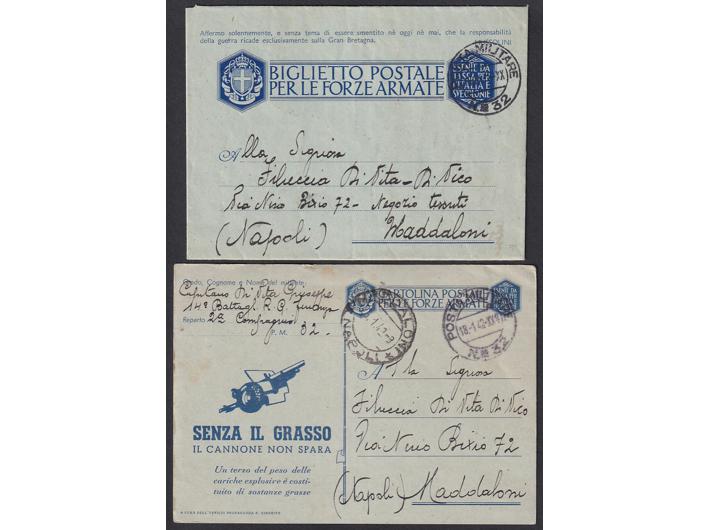 Affermo solennemente, e senza tema di essere smentito nè oggi nè mai, che la responsabilità
della guerra ricade esclusivamente sulla Gran Bretagna. MUSSOLINI
BIGLIETTO POSTALE
PER LE FORZE ARMATE
ESENTE DA
TASSA PER
L'ITALIA E
SUE COLONIE
POSTA MILITARE
N° 32
Alla Signora
Filuccia Di Vita-Di Nico
Via Nino Bixio 72 - Negozio tessuti
(Napoli) Maddaloni
Grado, Cognome e Nome del militare
Capitano Di Vita Giuseppe
14° Battagl. R. G. finanza
Reparto 2ª Compagnia
P. M. 32.
CARTOLINA POSTALE
PER LE FORZE ARMATE
MADDALONI
NAPOLI
POSTA MILITARE
18-1-42-XX
N° 32
SENZA IL GRASSO
IL CANNONE NON SPARA
Un terzo del peso delle
cariche esplosive è costi-
tuito di sostanze grasse
A CURA DELL'UFFICIO PROPAGANDA
Alla Signora
Filuccia Di Vita Di Nico
Via Nino Bixio 72
(Napoli) Maddaloni